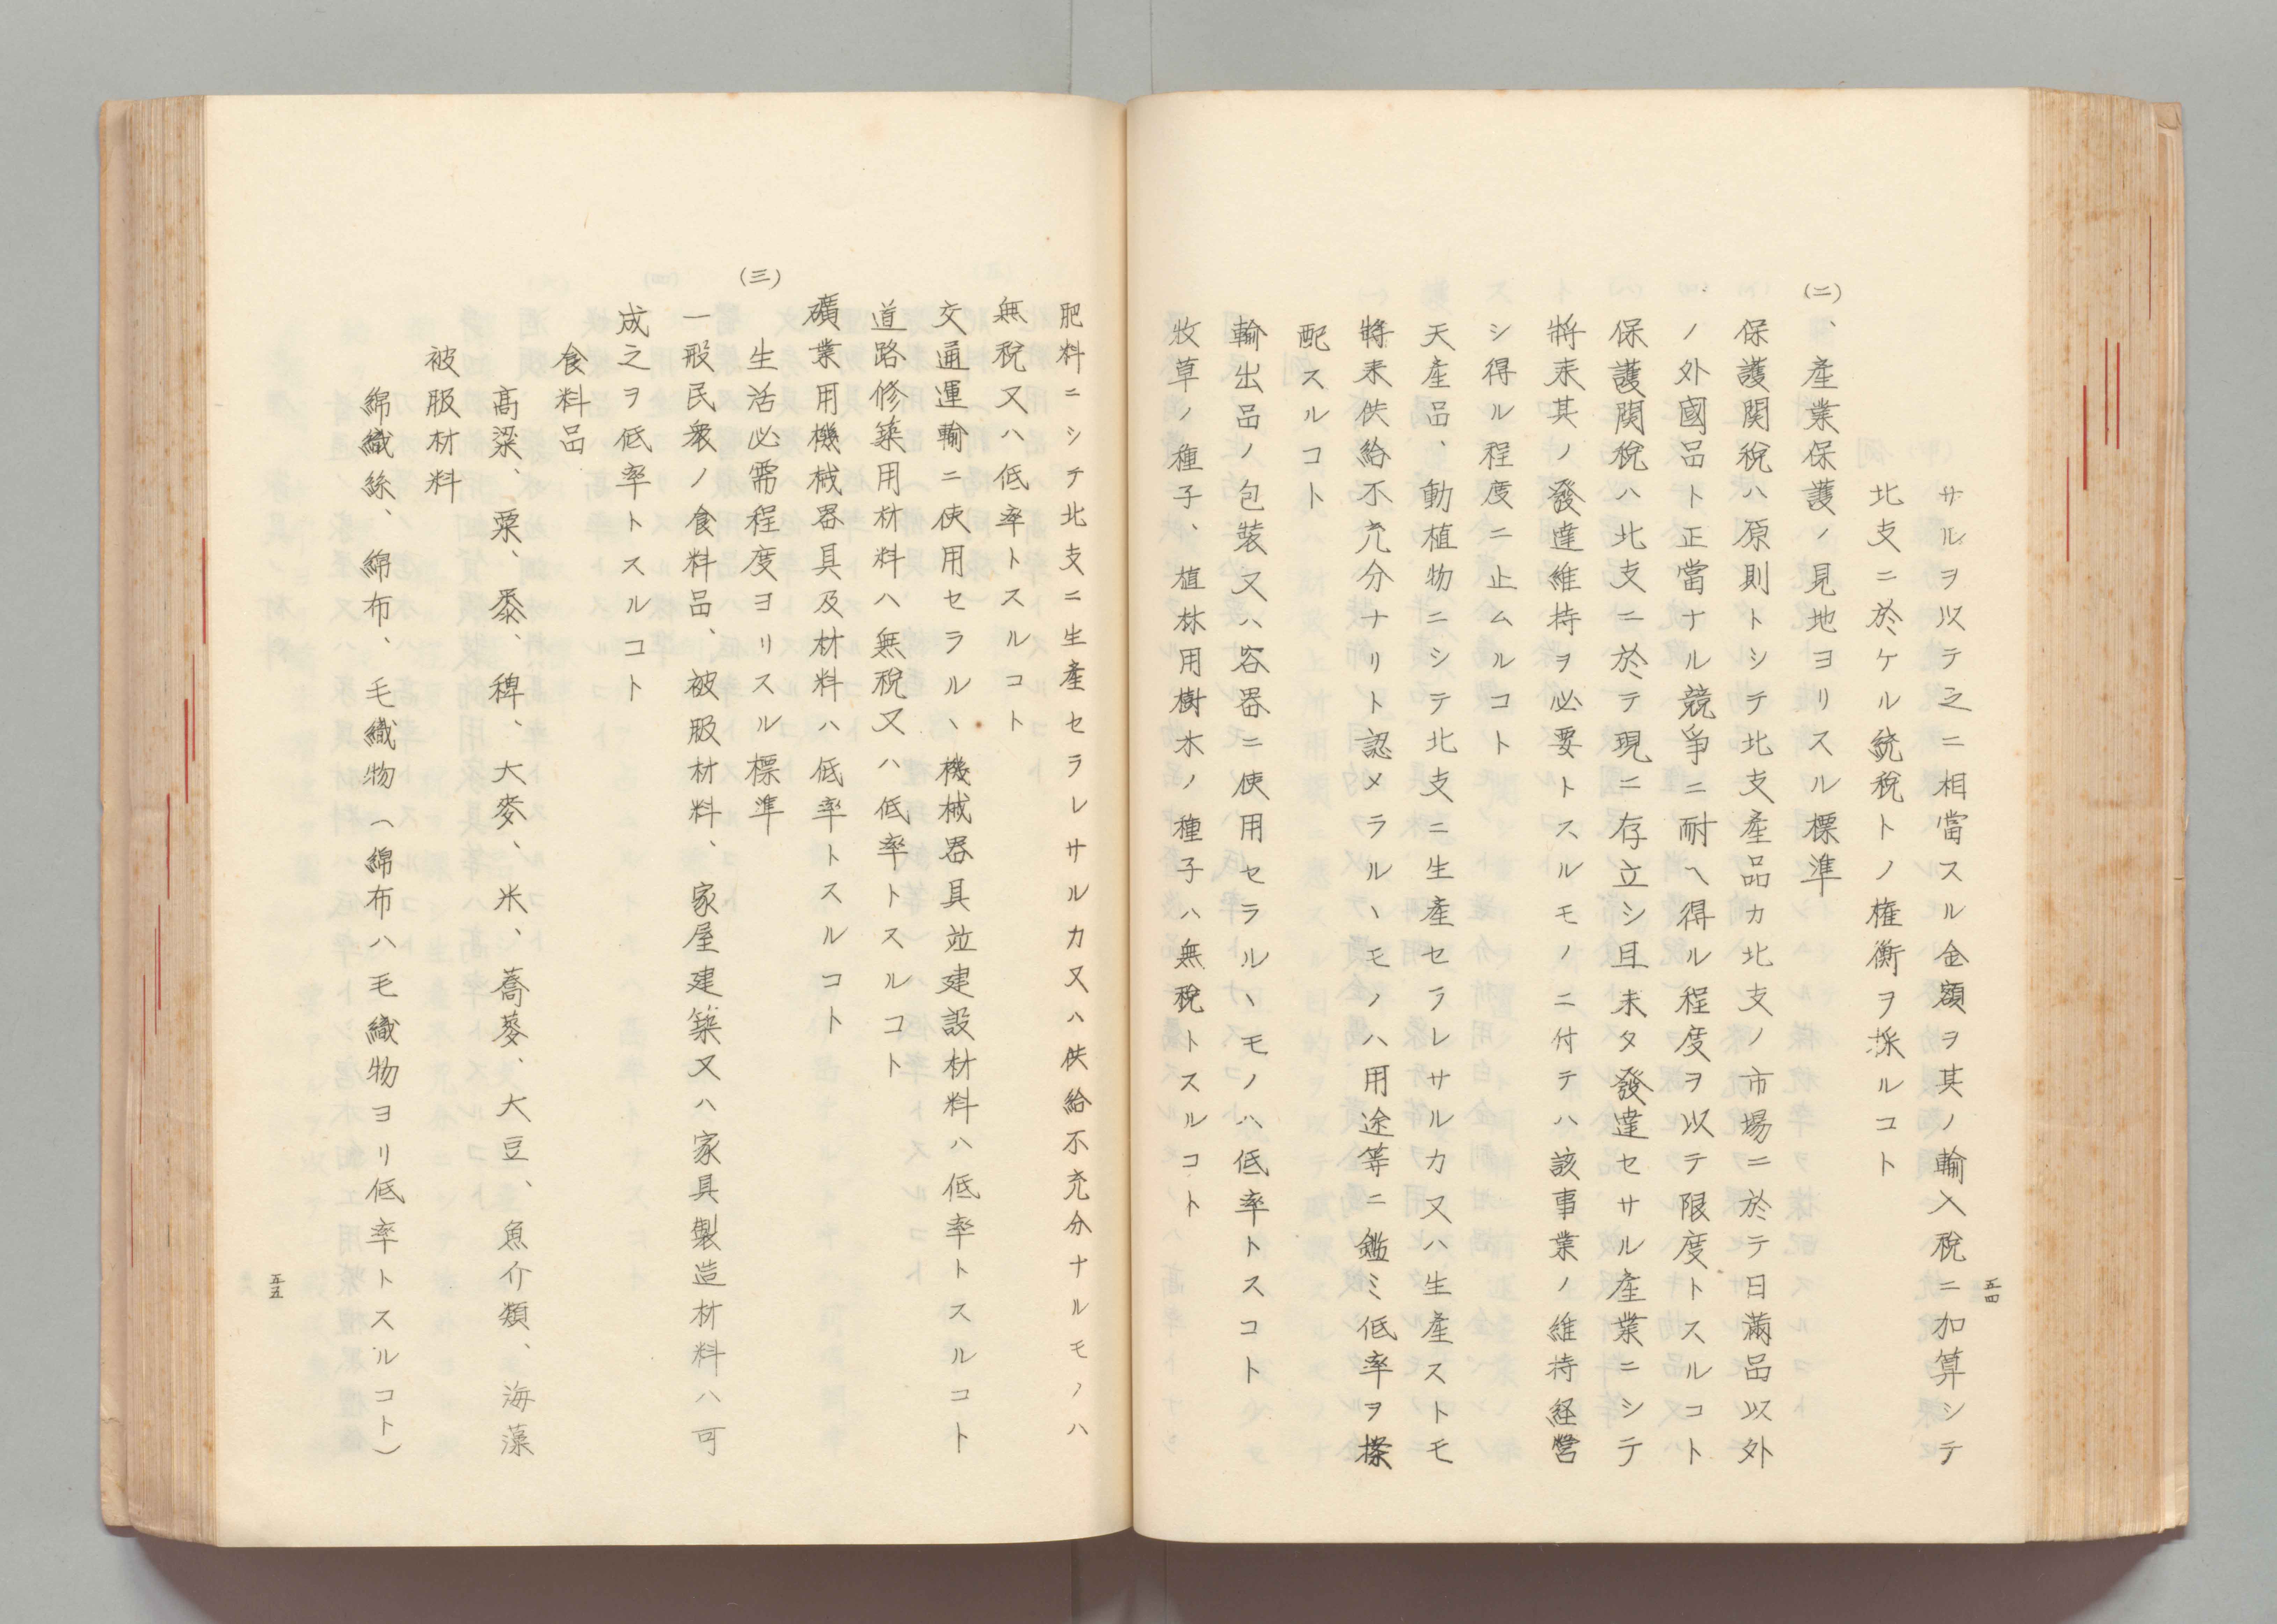 五四
サルヲ以テ之ニ相當スル金額ヲ其ノ輸入稅ニ加算シテ
北支ニ於ケル統稅トノ權衡ヲ採ルコト
(二)、產業保護ノ見地ヨリスル標準
保護関稅ハ原則トシテ北支產品カ北支ノ市場ニ於テ日滿品以外
ノ外國品ト正當ナル競爭ニ耐ヘ得ル程度ヲ以テ限度トスルコト
保護関稅ハ北支ニ於テ現ニ存立シ且未タ發達セサル產業ニシテ
將来其ノ發達維持ヲ必要トスルモノニ付テハ該事業ノ維持経営
シ得ル程度ニ止ムルコト
天產品、動植物ニシテ北支ニ生產セラレサルカ又ハ生產ストモ
將来供給不充分ナリト認メラルヽモノハ用途等ニ鑑ミ低率ヲ
配スルコト
輸出品ノ包裝又ハ容器ニ使用セラルヽモノハ低率トスコト
牧草ノ種子、植林用樹木ノ種子ハ無稅トスルコト
肥料ニシテ北支ニ生產セラレサルカ又ハ供給不充分ナルモノハ
無稅又ハ低率トスルコト
交通運輸ニ使用セラルヽ機械器具竝建設材料ハ低率トスルコト
道路修築用材料ハ無稅又ハ低率トスルコト
礦業用機械器具及材料ハ低率トスルコト
(三)生活必需程度ヨリスル標準
一般民衆ノ食料品、被服材料、家屋建築又ハ家具製造材料ハ可
成之ヲ低率トスルコト
食料品
高粱、粟、黍、稗、大麥、米、蕎麥、大豆、魚介類、海藻
被服材料
綿織絲、綿布、毛織物(綿布ハ毛織物ヨリ低率トスルコト)
五五